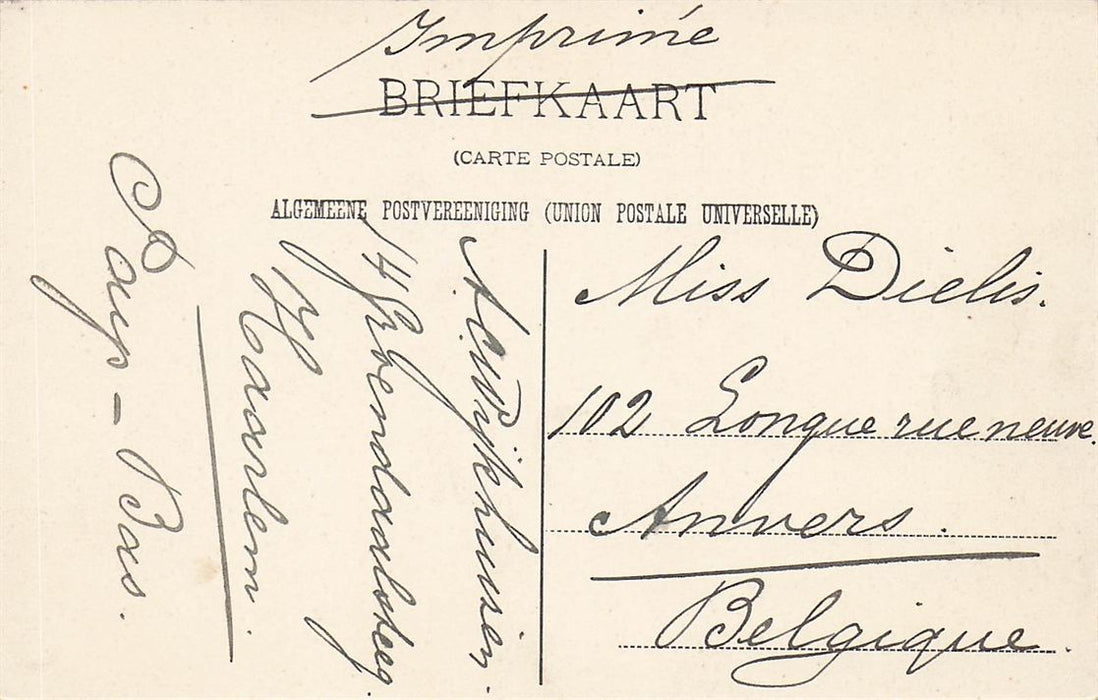 Imprimé
BRIEFKAART
(CARTE POSTALE)
ALGEMEENE POSTVEREENIGING (UNION POSTALE UNIVERSELLE)
Miss Dielis.
102 Longue rue neuve.
Anvers.
Belgique.
A. C. Wijkhuisen.
14 Groendaalsteeg
Haarlem.
Pays-Bas.